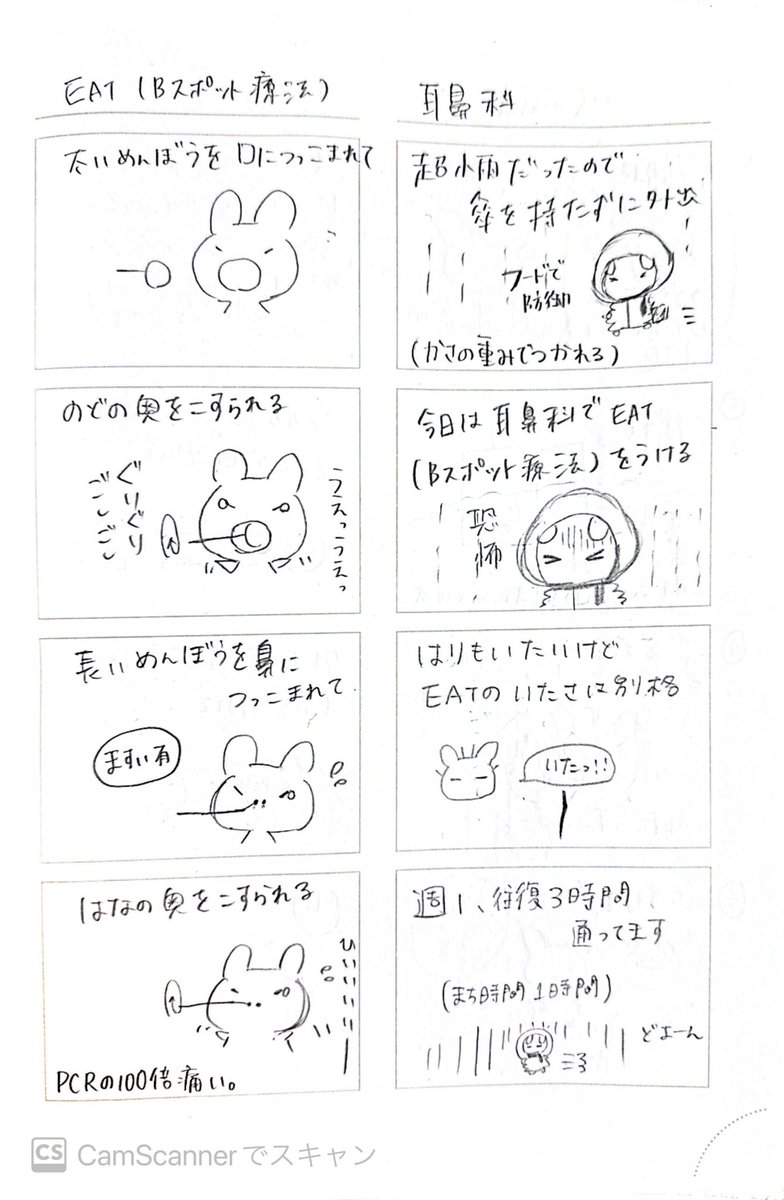 耳鼻科
超小雨だったので
傘を持たずに外出
フードで
防御
(かさの重みでつかれる)
今日は耳鼻科でEAT
(Bスポット療法)をうける
恐怖
はりもいたいけど
EATのいたさは別格
いたっ!!
週1、往復3時間、
通ってます
(まち時間1時間)
どよーん
EAT(Bスポット療法)
太いめんぼうを口につっこまれて
のどの奥をこすられる
うえっうえっ
ぐりぐり
ごしごし
長いめんぼうを鼻に
つっこまれて
ますい有
はなの奥をこすられる
ひいいいいい
PCRの100倍痛い。
CS CamScannerでスキャン